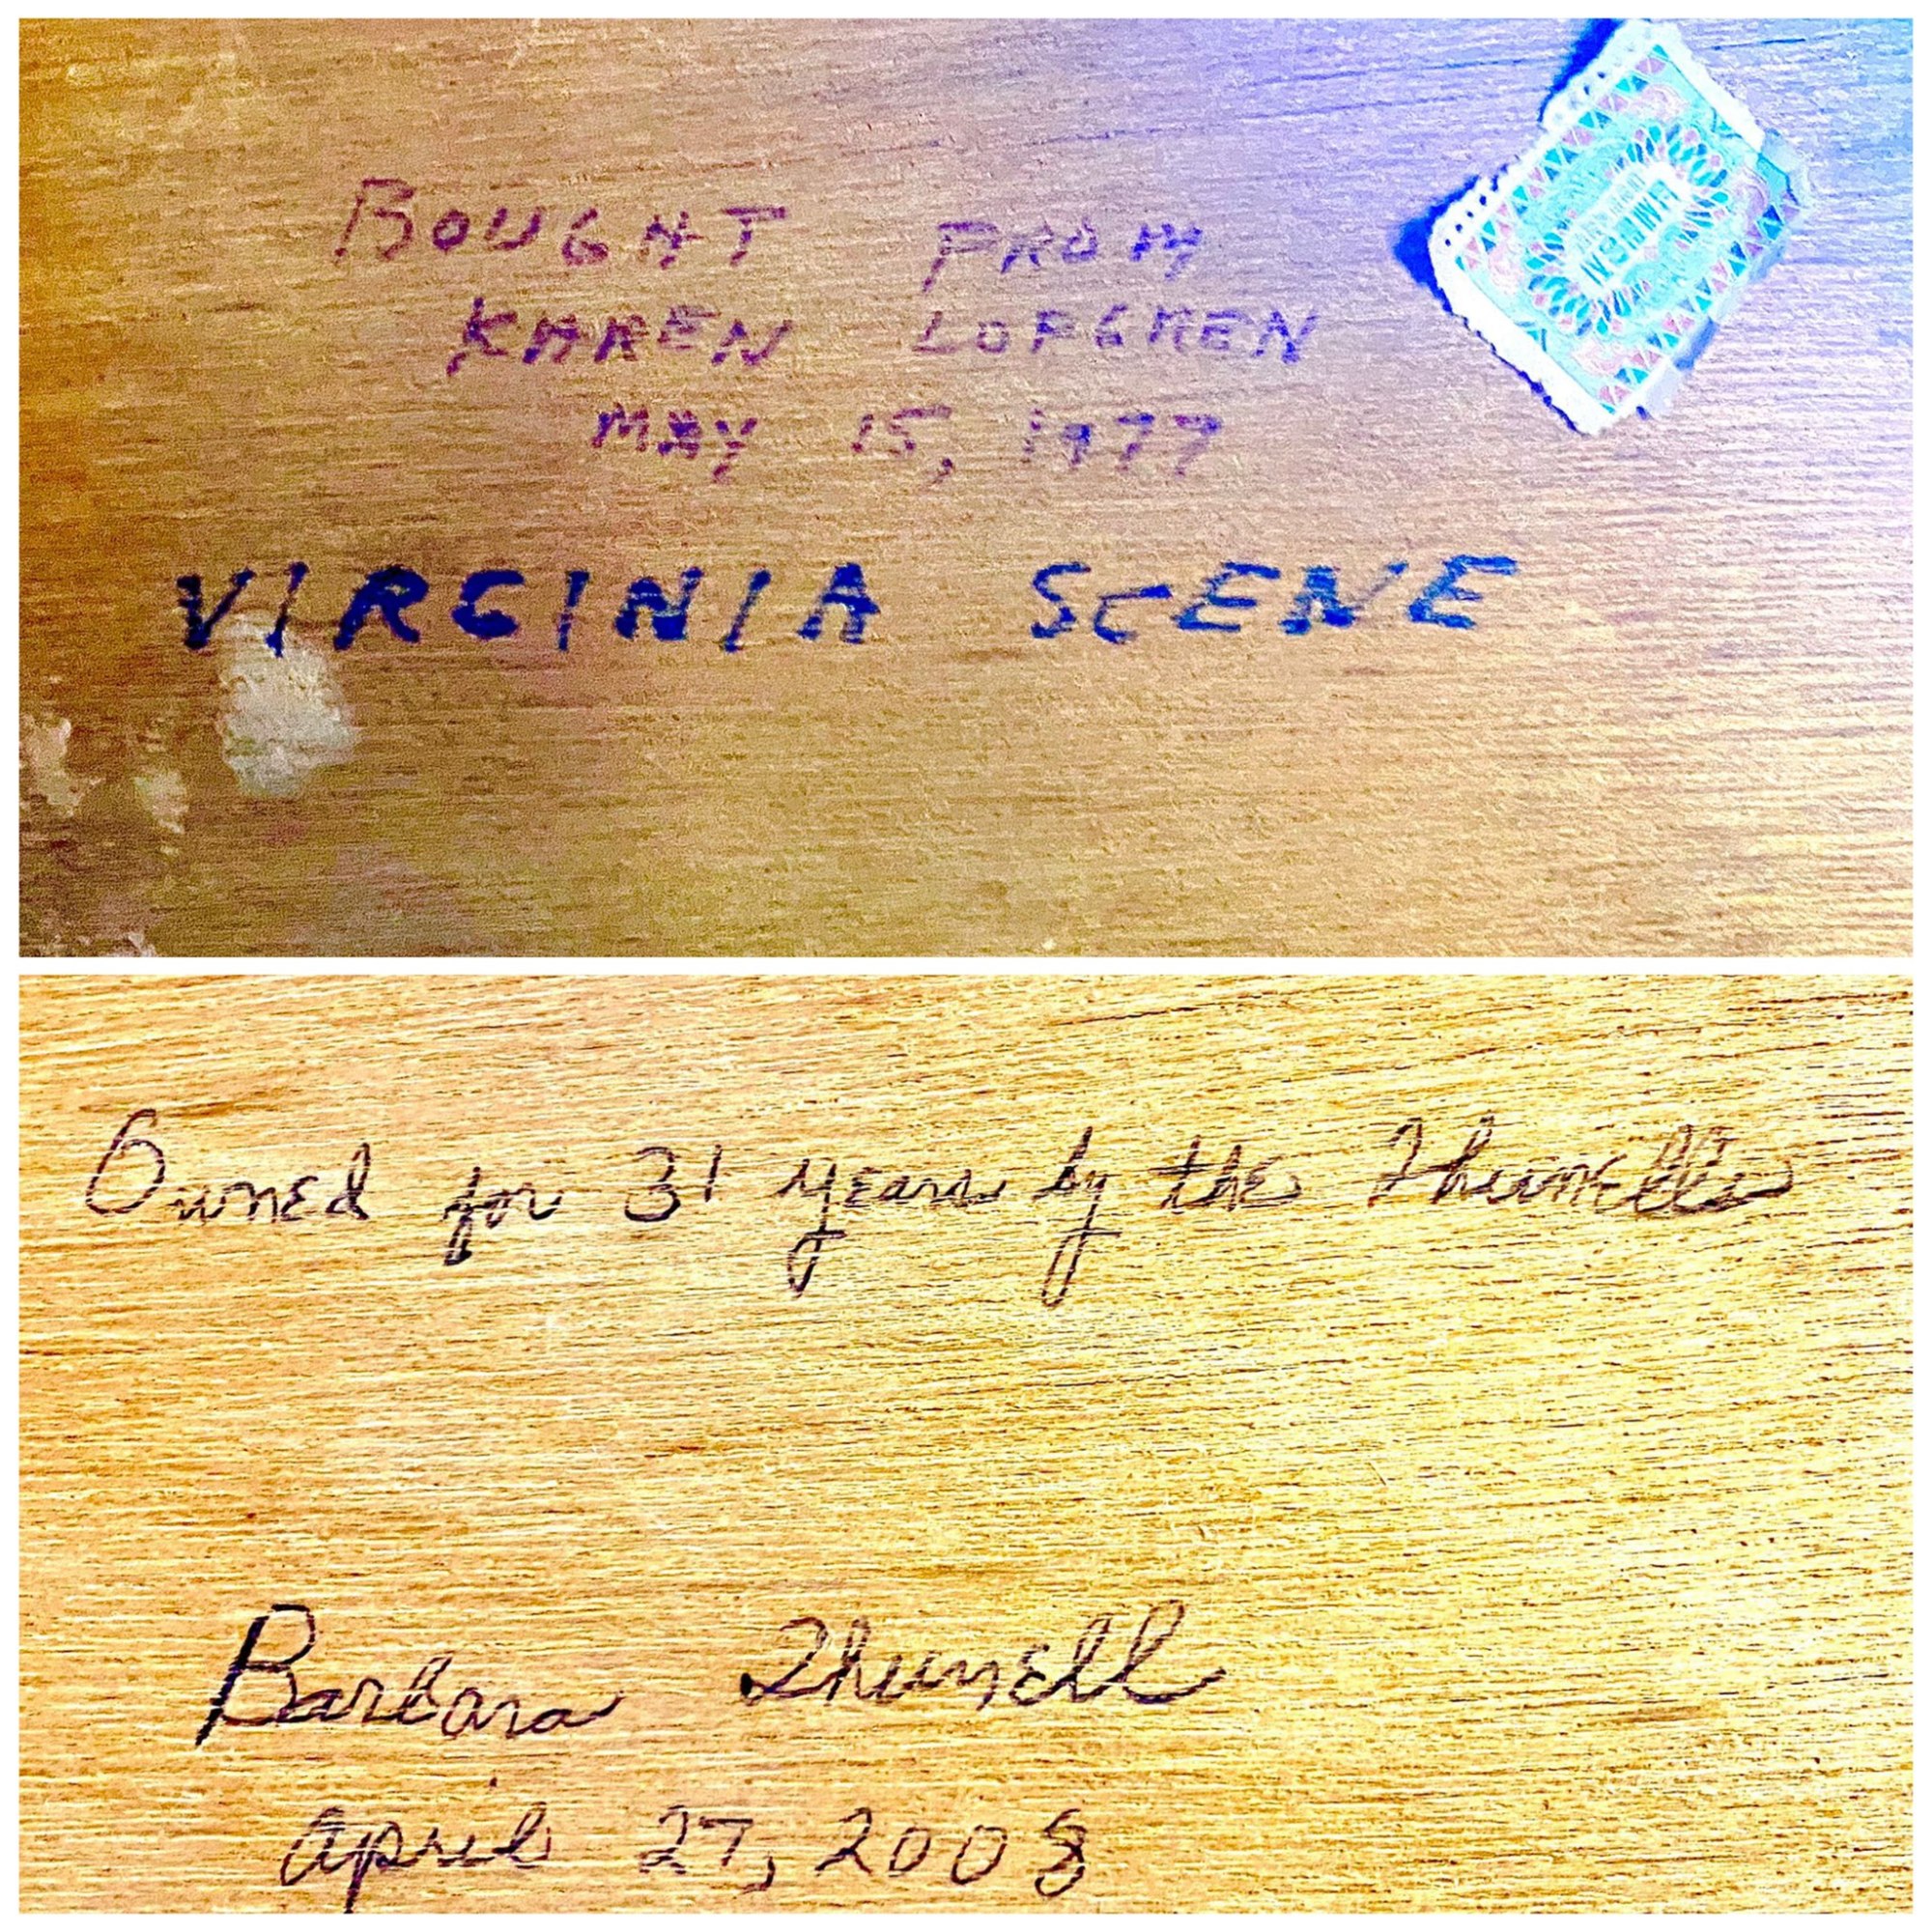 BOUGHT FROM
KAREN LOFGREN
MAY 15, 1977
VIRGINIA SCENE
Owned for 31 years by the Thunells
Barbara Thunell
April 27, 2008